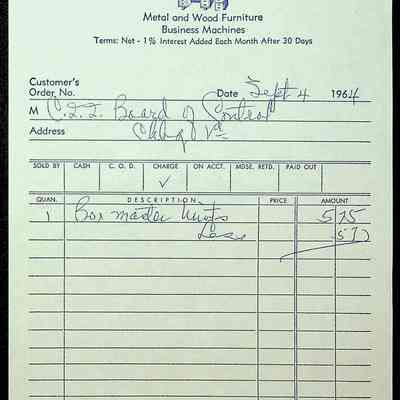 Metal and Wood Furniture
Business Machines
Terms: Net - 1% Interest Added Each Month After 30 Days
Customer's
Order No. Date Sept 4 1964
M Board of Control
Address Va
SOLD BY CASH C. O. D. CHARGE ON ACCT. MDSE. RETD. PAID OUT
✓
QUAN. DESCRIPTION PRICE AMOUNT
1 Box master 5 75
Less